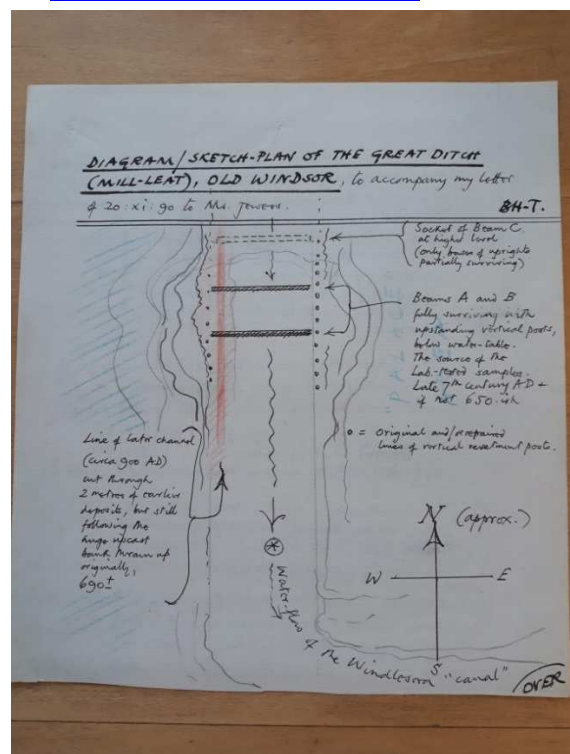 DIAGRAM/SKETCH-PLAN OF THE GREAT DITCH
(MILL-LEAT), OLD WINDSOR, to accompany my letter
of 20:xi:90 to Ms. Jewers.
BH-T.
Socket of Beam C.
at higher level
(only bases of uprights
partially surviving)
Beams A and B
fully surviving with
upstanding vertical posts,
below water-table.
The source of the
Lab.-tested samples.
Late 7th century AD +
if not 650-ish
o = Original and/or repaired
lines of vertical revetment posts.
Line of later channel
(circa 900 AD)
cut through
2 metres of earlier
deposits, but still
following the
huge upcast
bank thrown up
originally,
690±
N (approx.)
W E
S
Water-flow of the Windlesora "canal"
OVER